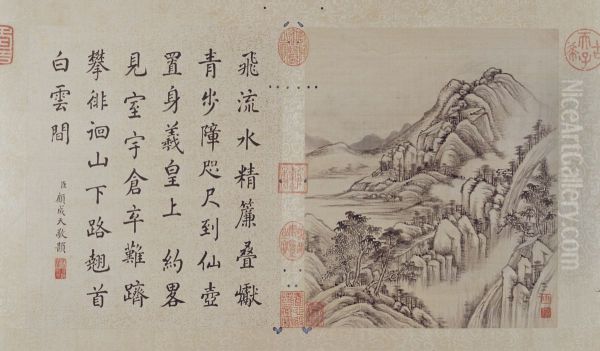 飛流水精簾叠巘
青步障咫尺到仙壺
置身羲皇上約畧
見室宇倉卒難躋
攀徘徊山下路翹首
白雲間
臣顧成天敬題
NiceArtGallery.com